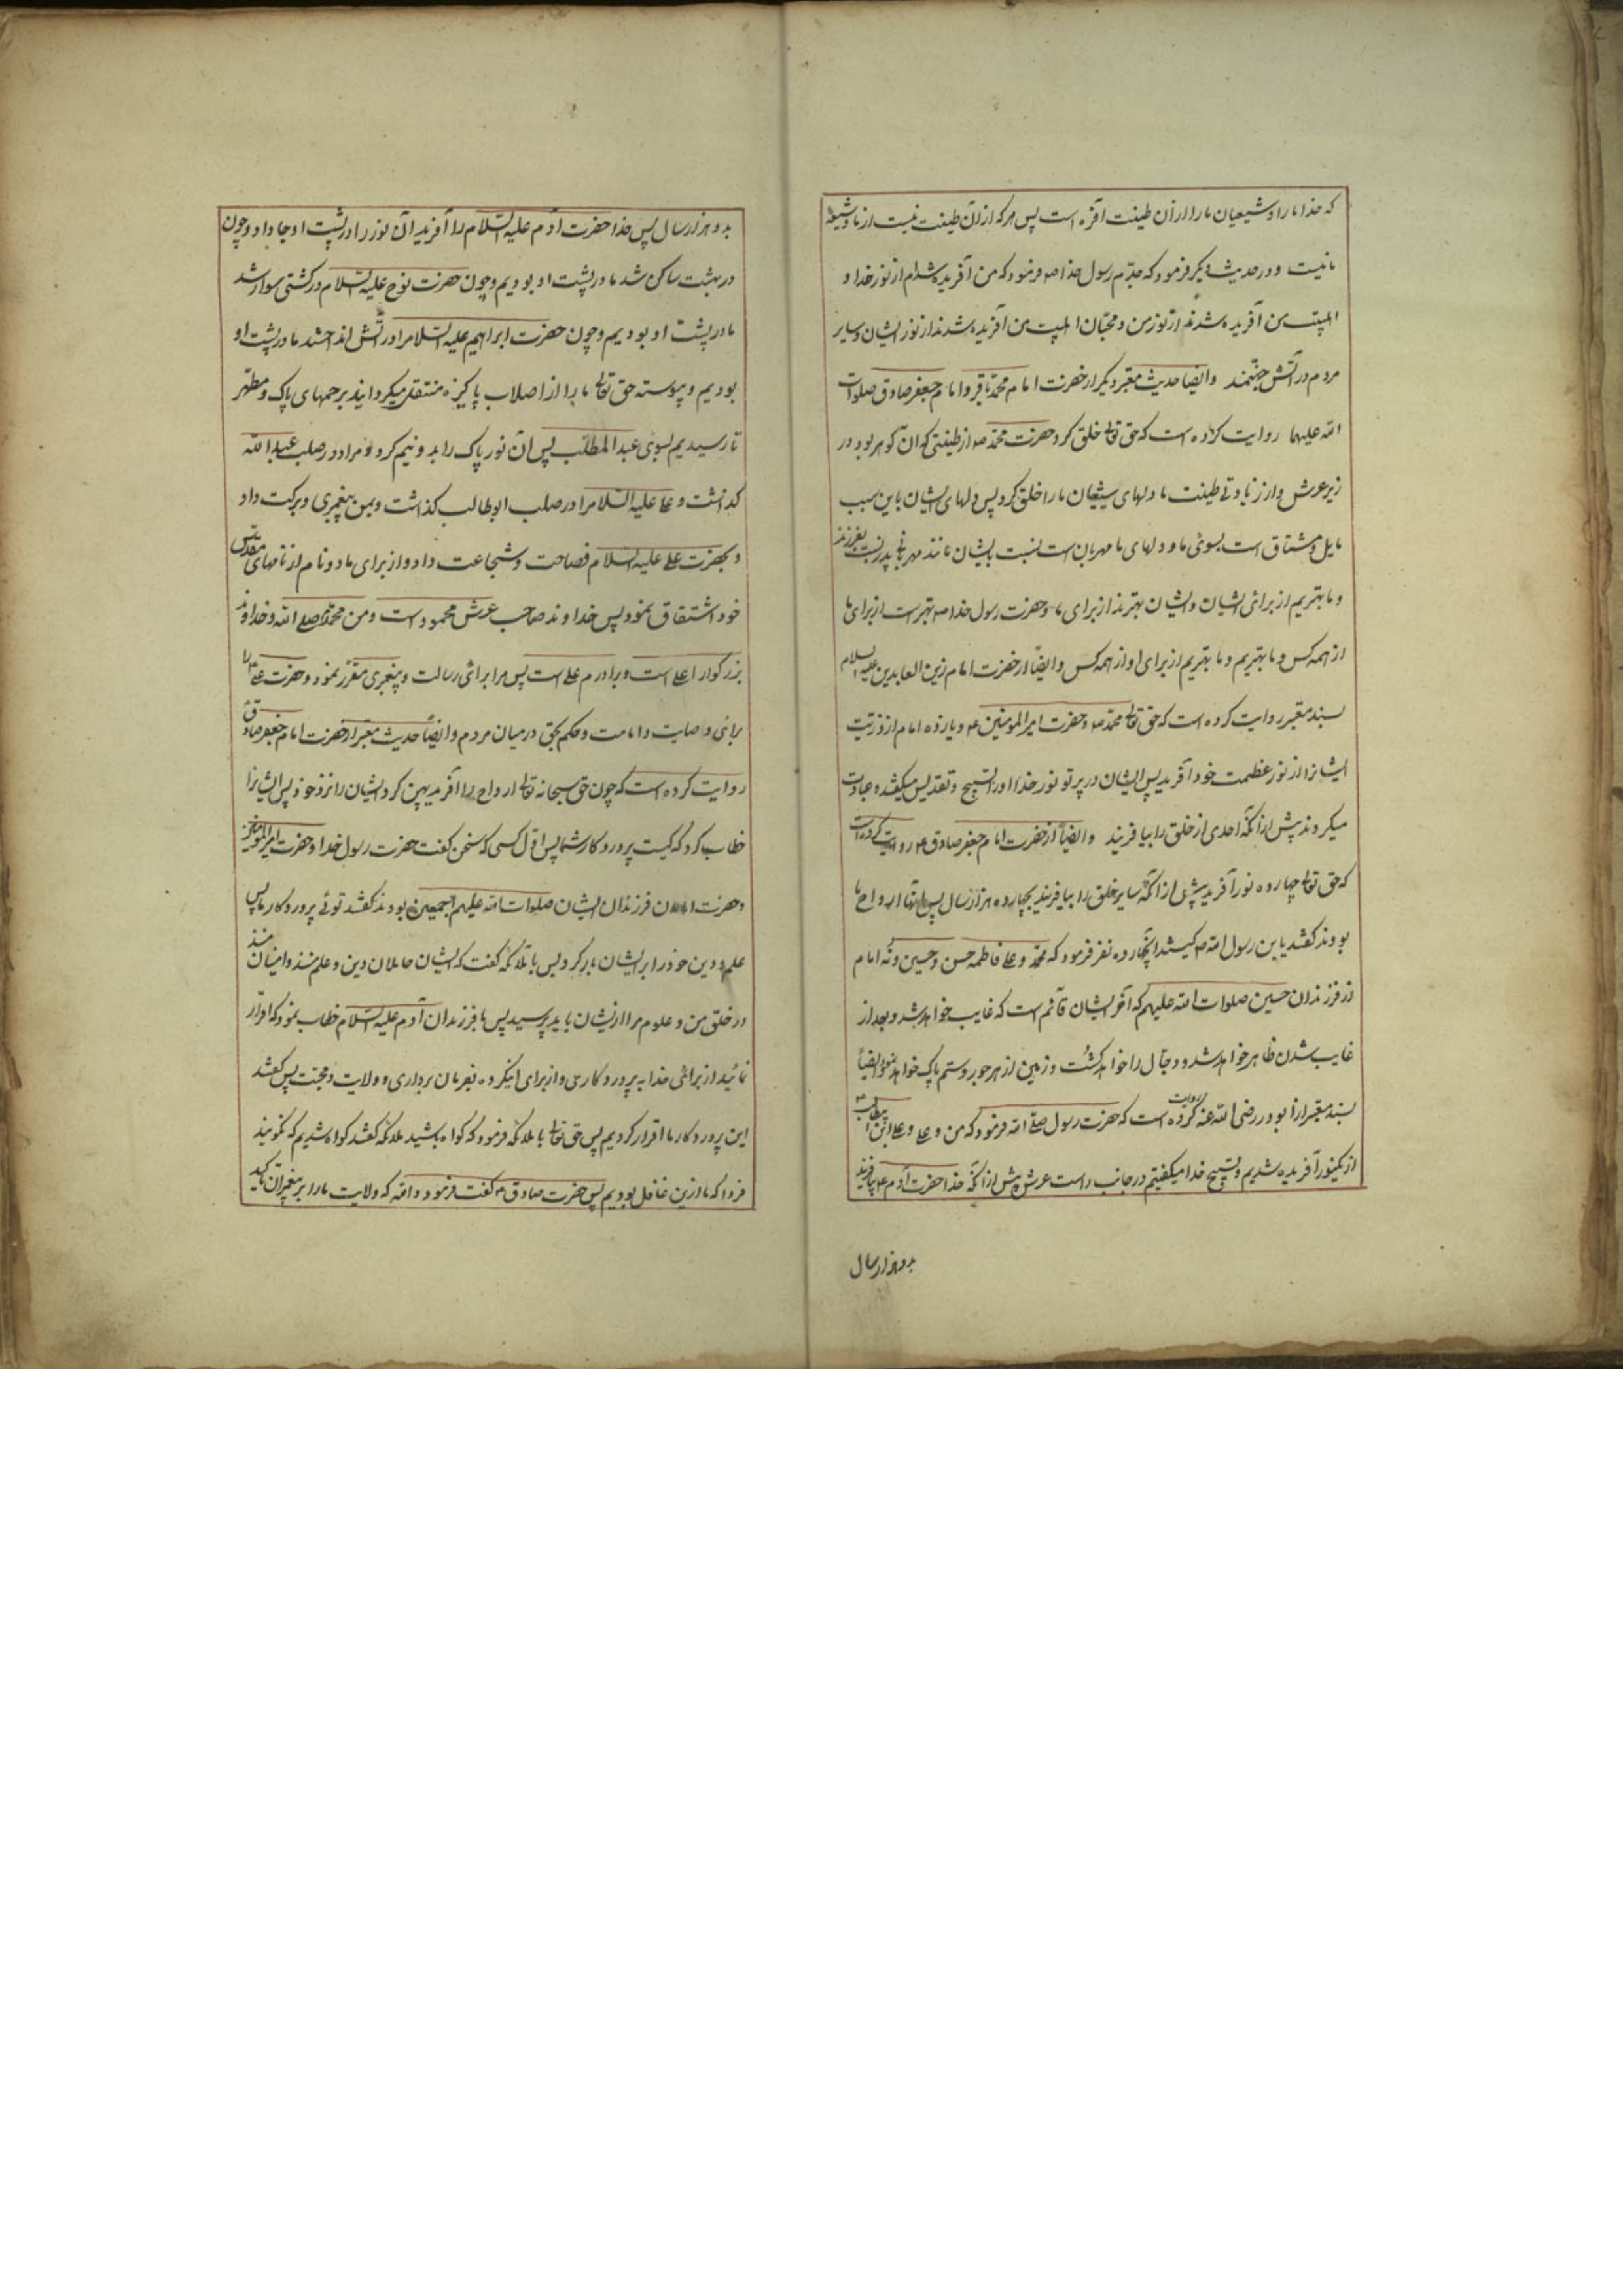 که خدا ما را و شیعیان ما را از آن طینت آفره است پس هر که از آن طینت نیست از ما و شیعهٔ
ما نیست و در حدیث دیکر فرمود که جدّم رسول خدا صه فرمود که من آفریده شده‌ام از نور خدا و
اهلبیت من آفریده شدند از نور من و محبّان اهلبیت من آفریده شدند از نور ایشان و سایر
مردم در آتش جهنّمند وایضا حدیث معتبر دیکر از حضرت امام محمّد باقر و امام جعفر صادق صلوات
الله علیهما روایت کرده است که حق تعالی خلق کرد حضرت محمّد صه از طینتی که آن کوهر بود در
زیر عرش و از زیادتی طینت ما دلهای شیعیان ما را خلق کرد پس دلهای ایشان باین سبب
مایل و مشتاق است بسوی ما و دلهای ما مهربان است نسبت بایشان مانند مهربانی پدر نسبت بفرزند
و ما بهتریم از برای ایشان و ایشان بهترند از برای ما و حضرت رسول خدا صه بهتر است از برای ما
از همه کس و ما بهتریم و ما بهتریم از برای او از همه کس وایضاً از حضرت امام زین العابدین علیه السلام
بسند معتبر روایت کرده است که حق تعالی محمّد صه و حضرت امیر المومنین ۴ و یازده امام از ذرّیت
ایشانرا از نور عظمت خود آفرید پس ایشان در پرتو نور خدا او را تسبیح و تقدیس میکفتند و عبادت
میکردند پیش از آنکه احدی از خلق را بیافریند وایضاً از حضرت امام جعفر صادق ۴ روایت کرده است
که حق تعالی چهارده نور آفرید پیش از آنکه سایر خلق را بیافریند بچهارده هزار سال پس آنها ارواح ما
بودند کفتند یابن رسول الله ص کیستند آنچهارده نفر فرمود که محمّد و علی و فاطمه حسن و حسین و نه امام
از فرزندان حسین صلوات الله علیهم که آخر ایشان قائم است که غایب خواهد شد و بعد از
غایب شدن ظاهر خواهد شد و دجّال را خواهد کشت و زمین از هر جور و ستم پاک خواهد نمود وایضاً
بسند معتبر از ابوذر رضی الله عنه روایت کرده است که حضرت رسول صلی الله فرمود که من و علی و علی ابن ابیطالب ۴
از یکنور آفریده شدیم و تسبیح خدا میکفتیم در جانب راست عرش پیش از آنکه خدا حضرت آدم ۴ بیافریند
بدو هزار سال
بدو هزار سال پس خدا حضرت آدم علیه السّلام را آفرید آن نور را در پشت او جا داد و چون
در بهشت ساکن شد ما در پشت او بودیم و چون حضرت نوح علیه السّلام در کشتی سوار شد
ما در پشت او بودیم و چون حضرت ابراهیم علیه السّلام را در آتش انداختند ما در پشت او
بودیم و پیوسته حق تعالی ما را از اصلاب پاکیزه منتقل میکردانید برحمهای پاک و مطهّر
تا رسیدیم بسوی عبد المطلّب پس آن نور پاک را بدو نیم کرد و مرا در صلب عبد الله
کذاشت و علی علیه السّلام را در صلب ابوطالب کذاشت و بمن پیغمبری و برکت داد
و بحضرت علی علیه السلام فصاحت و شجاعت داد و از برای ما دو نام از نامهای مقدّس
خود اشتقاق نمود پس خداوند صاحب عرش محمود است و من محمّدم صلی الله و خداوند
بزرکوار اعلی است و برادرم علی است پس مرا برای رسالت و پیغمبری مقرّر نمود و حضرت علی ۴ را
برای وصایت و امامت و حکم بحق در میان مردم وایضاً حدیث معتبر از حضرت امام جعفر صادق ۴
روایت کرده است که چون حق سبحانه تعالی ارواح را آفرید پهن کرد ایشان را نزد خود پس ایشانرا
خطاب کرد که کیست پروردکار شما پس اوّل کسی که سخن کفت حضرت رسول خدا و حضرت امیر المومنین
و حضرت امامان فرزندان ایشان صلوات الله علیهم اجمعین بودند کفتند توئی پروردکار ما پس
علم و دین خود را بر ایشان بار کرد پس با ملائکه کفت که ایشان حاملان دین و علم منند و امینان منند
در خلق من و علوم مرا از ایشان باید پرسید پس با فرزندان آدم علیه السّلام خطاب نمود که اقرار
نمائید از برای خدا به پروردکاری و از برای اینکروه بفرمان برداری و ولایت و محبّت پس کفتند
این پروردکار ما اقرار کردیم پس حق تعالی با ملائکه فرمود که کواه باشید ملائکه کفتند کواه شدیم که نکویند
فردا که ما ازین غافل بودیم پس حضرت صادق ۴ کفت فرمود والله که ولایت ما را بر پیغمبران تاکید